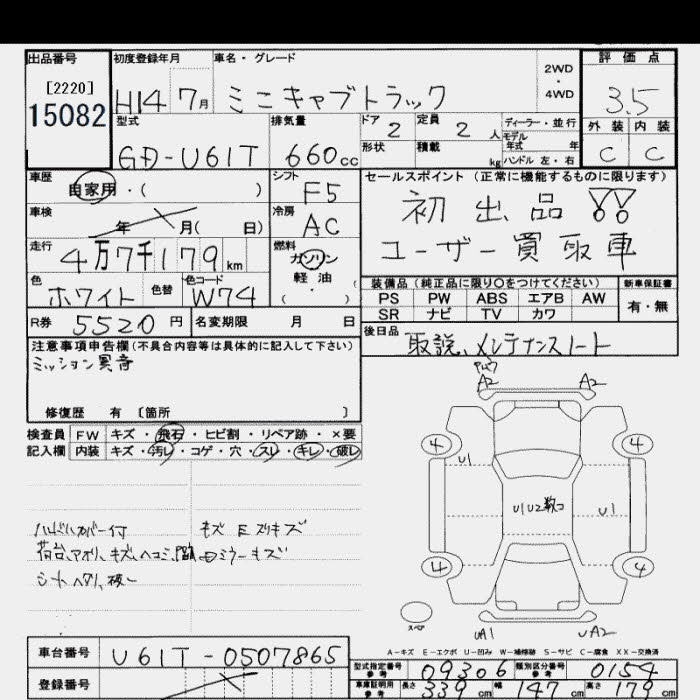 出品番号 初度登録年月 車名・グレード 2WD・4WD 評価点
[2220]
15082 H14 7月 ミニキャブトラック 3.5
型式 排気量 ドア 2 定員 2人 ディーラー・並行 外装 内装
モデル年式 年
GD-U61T 660cc 形状 積載 kg ハンドル 左・右 C C
車歴 シフト セールスポイント (正常に機能するものに限ります)
自家用・( ) F5 初出品!!
車検 冷房
年 月( 日) AC ユーザー買取車
走行 燃料
4万7千179km ガソリン
色 色替 色コード 軽油 装備品(純正品に限り○をつけてください) 新車保証書
ホワイト W74 ( ) PS PW ABS エアB AW 有・無
SR ナビ TV カワ
R券 5520円 名変期限 月 日 後日品
取説、メンテナンスノート
注意事項申告欄(不具合内容等は具体的に記入して下さい)
ミッション異音
修復歴 有 [箇所 ]
検査員 FW キズ・飛石・ヒビ割・リペア跡・×要
記入欄 内装 キズ・汚レ・コゲ・穴・スレ・キレ・破レ
A2 A2
4 4
U1
U1U2数コ U1
4 4
ハンドルカバー付 キズ E ズリキズ
荷台、アオリ、キズ、ヘコミ、 ミラーキズ
シート
スペア
UA1 UA2
A-キズ E-エクボ U-凹み W-補修跡 S-サビ C-腐食 XX-交換済
車台番号 U61T-0507865
型式指定番号 参考 09306 類別区分番号 参考 0154
登録番号
車庫証明用 参考 長さ 339cm 幅 147cm 高さ 179cm